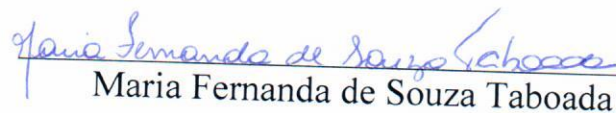 Maria Fernanda de Souza Taboada
Maria Fernanda de Souza Taboada